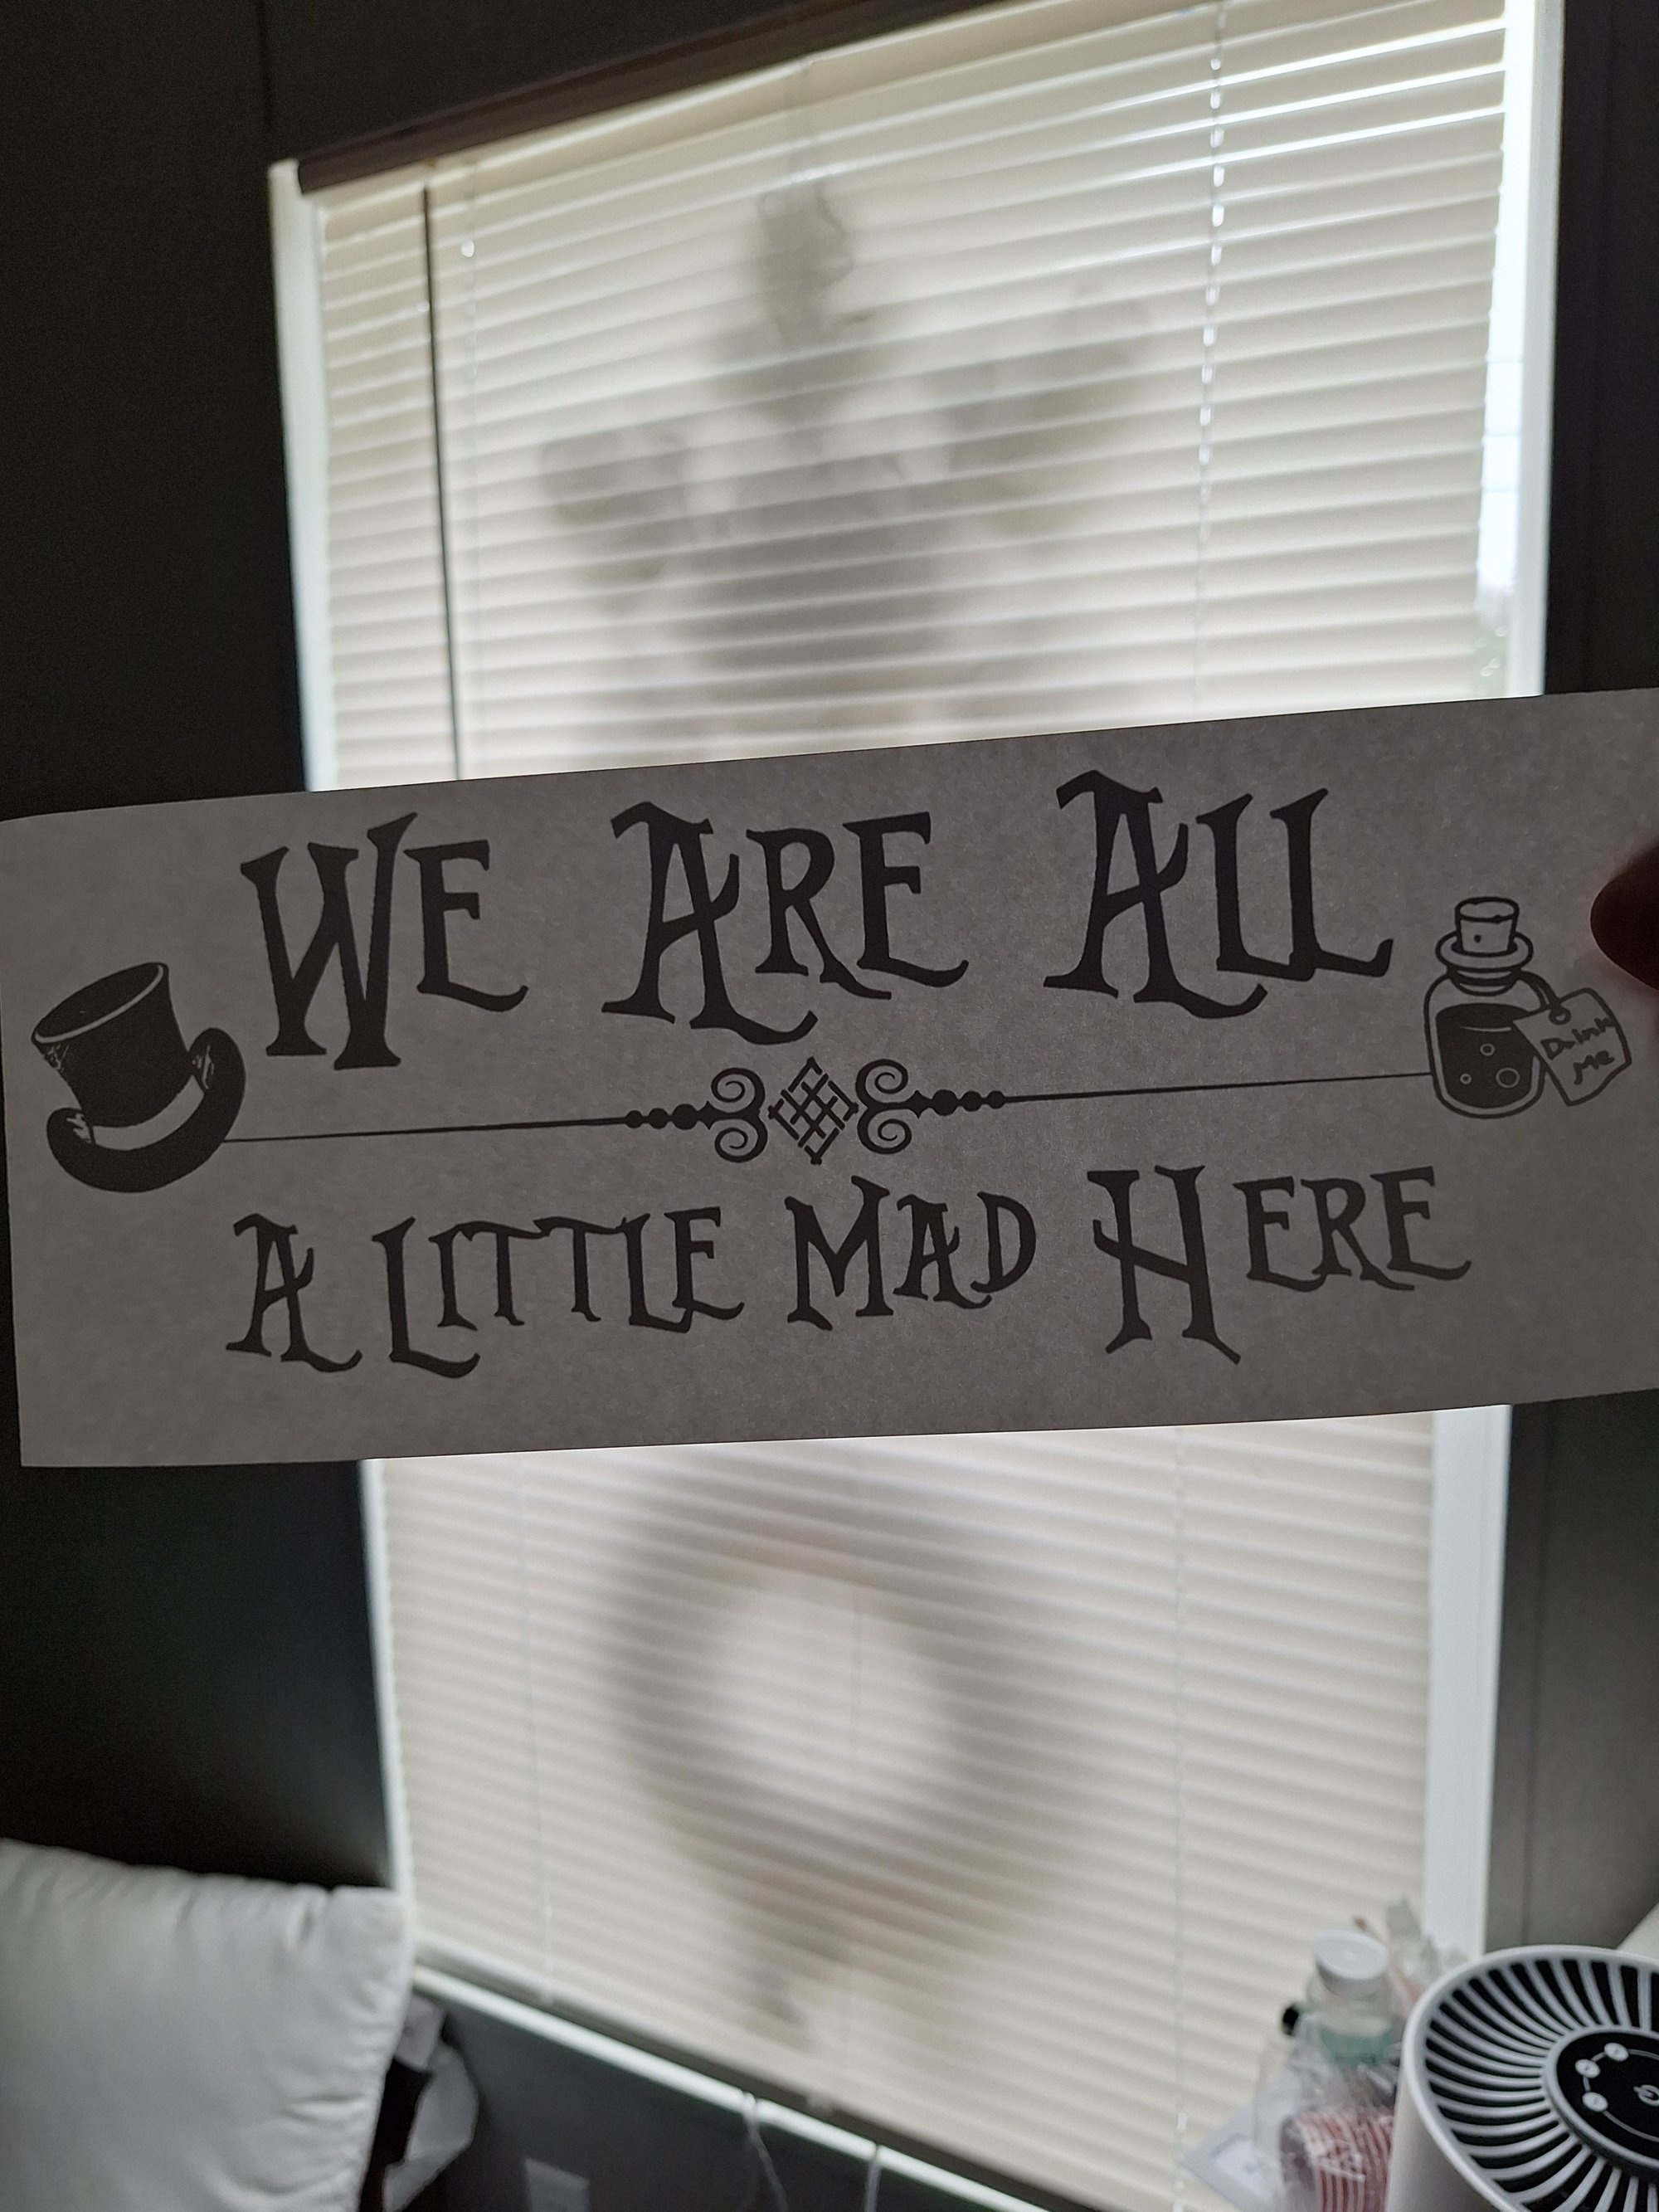 WE ARE ALL
Drink
Me
A LITTLE MAD HERE